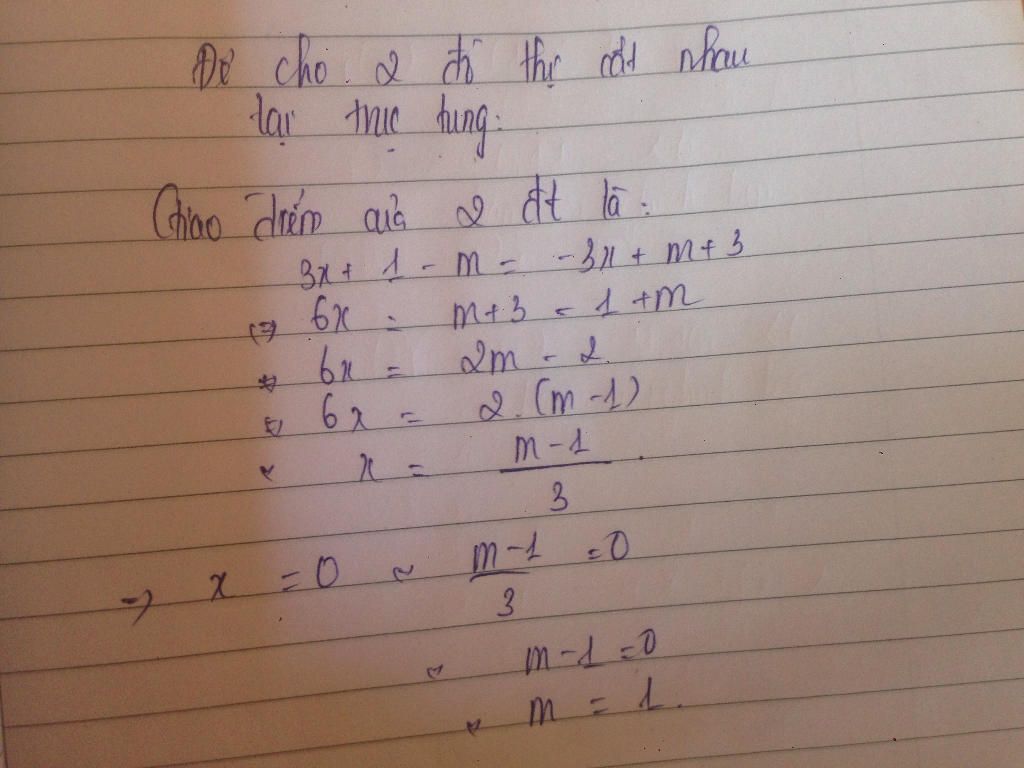 Để cho 2 đồ thị cắt nhau
tại trục tung:
Giao điểm của 2 đt là:
3x + 1 - m = -3x + m + 3
(=) 6x = m + 3 - 1 + m
6x = 2m - 2
6x = 2.(m-1)
x = \frac{m-1}{3}.
=> x = 0 ~ \frac{m-1}{3} = 0
m - 1 = 0
m = 1.